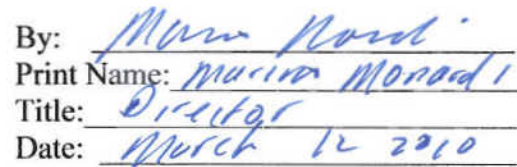 By:
Print Name: Marina Monardi
Title: Director
Date: March 12 2010